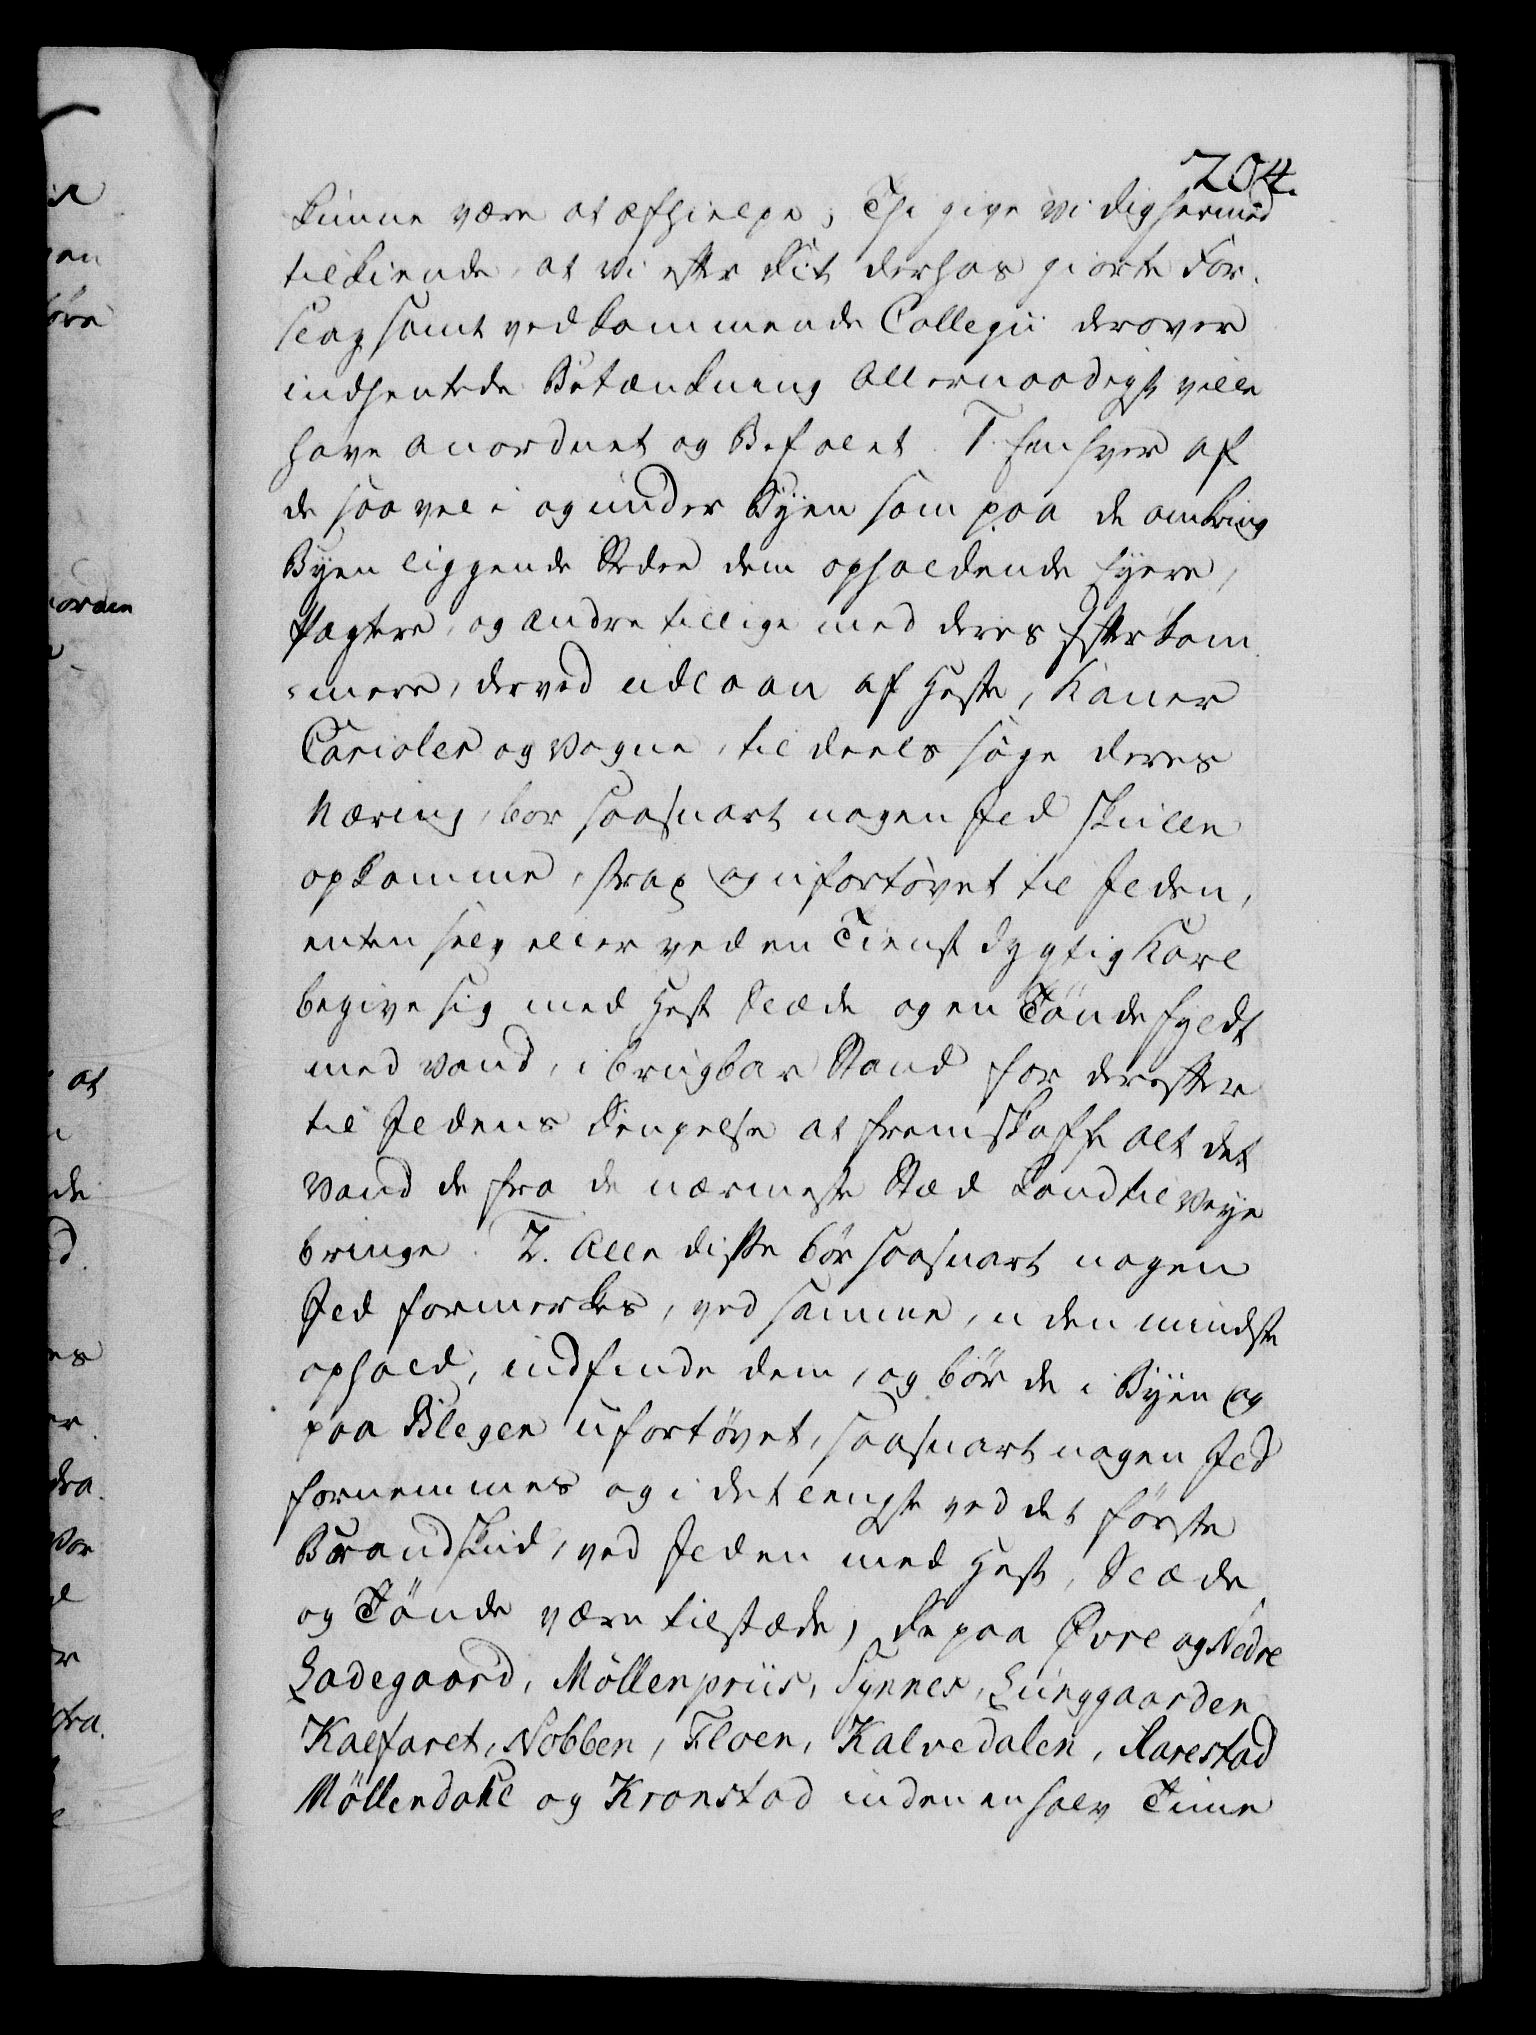 204.
kunne være at afhielpe; Thi give vi dig hermed
tilkiende, at vi efter dit derhos giorte For-
slag samt vedkommende Collegii derover
indhentede Betænkning Allernaadigst ville
have anordnet og Befalet 1. Enhver af
de saavel i og under Byen som paa de omkring
Byen liggende Steder dem opholdende Eyere,
Pagtere, og andre tillige med deres Efterkom-
mere, der ved udlaan af Heste, Kaner
Carioler og Vogne, til deels søge deres
Næring, bør saasnart nogen Ild skulle
opkomme, strax og ufortøvet til Ilden,
enten selv eller ved en Tienst dygtig Karl
begive sig med Hest Slæde og en Tönde fyldt
med Vand, i brugbar Stand for derefter
til Ildens Dempelse at fremskaffe alt det
Vand de fra de nærmeste Stæd kand til Veye
bringe. 2. Alle disse bør saasnart nogen
Ild formerkes, ved samme, uden mindste
ophold, indfinde dem, og bør de i Byen og
paa Blegen ufortøvet, saasnart nogen Ild
fornemmes og i det lengste ved det første
Brandskud, ved Ilden med Hest, Slæde
og Tönde være tilstæde, de paa Øvre og Nedre
Ladegaard, Möllenpriis, Synnes, Lunggaarden
Kalfaret, Nobben, Floen, Kalvedalen, Aarestad
Möllendahl og Kronstad inden en halv Time